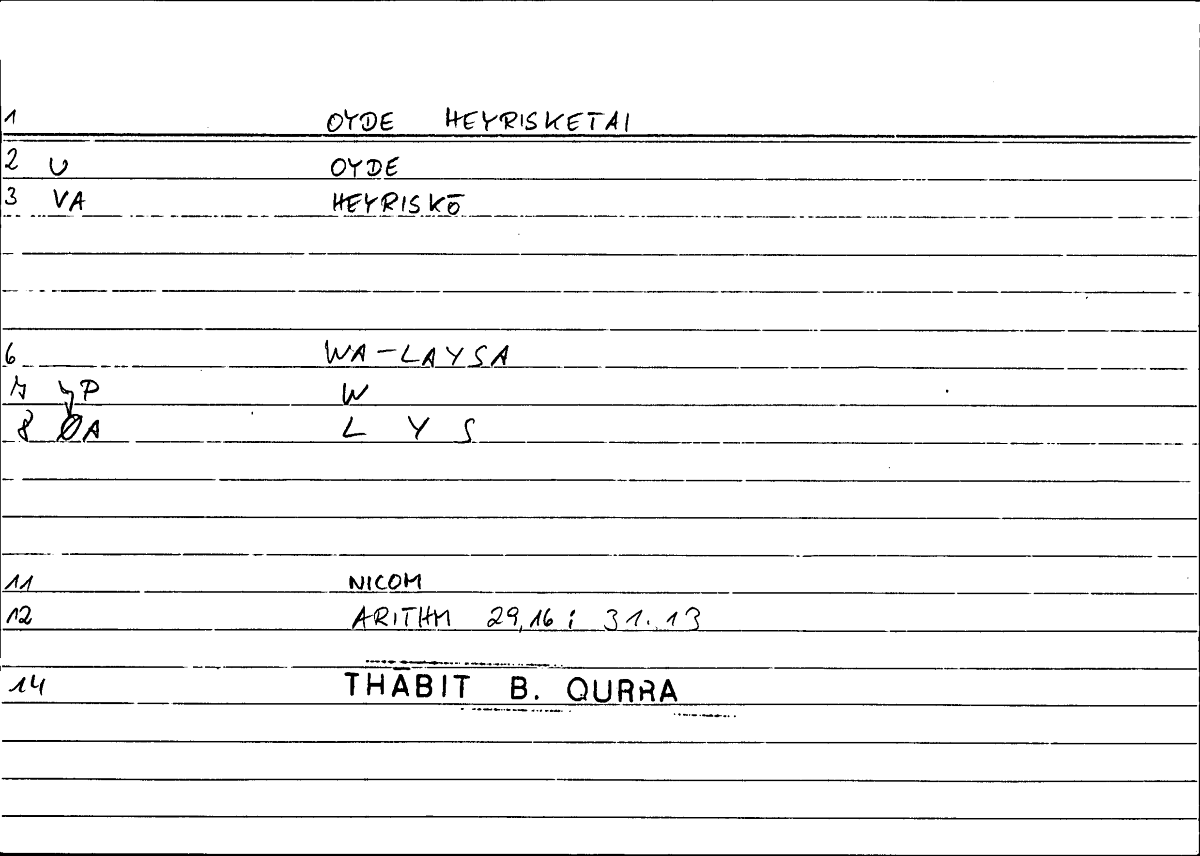 1 OYDE HEYRISKETAI
2 U OYDE
3 VA HEYRISKŌ
6 WA-LAYSA
7 P W
8 ØA L Y S
11 NICOM
12 ARITHM 29,16; 31.13
14 THĀBIT B. QURRA